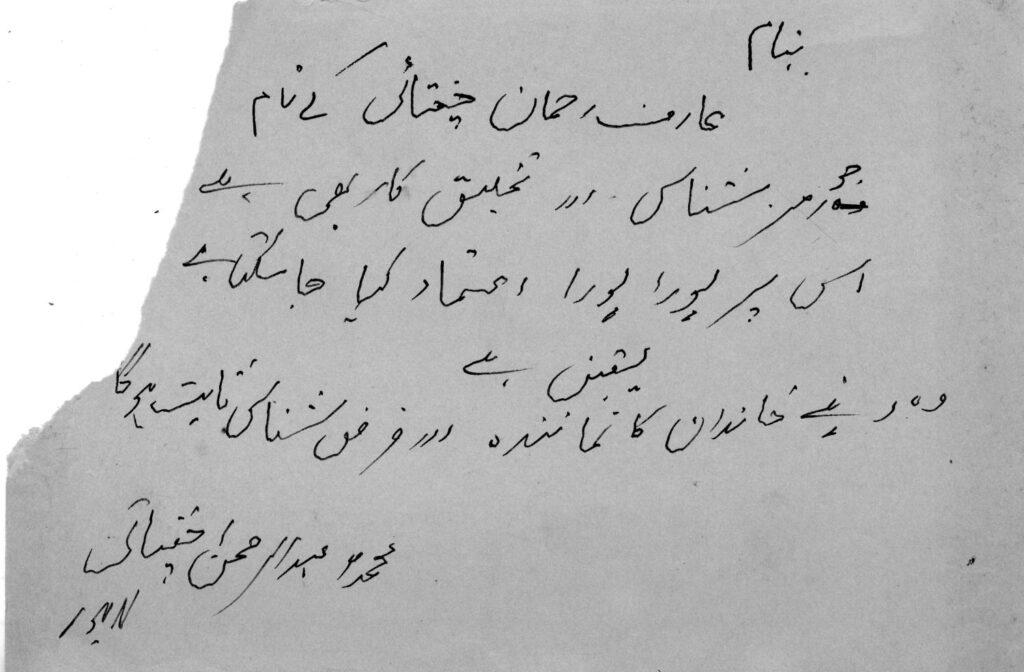 بنام
عارف رحمان چغتائی کے نام
جو فرض شناس اور تخلیق کار بھی ہے
اس پر پورا پورا اعتماد کیا جا سکتا ہے
یقین ہے
وہ اپنے خاندان کا نمائندہ اور فرض شناس ثابت ہوگا
محمد عبدالرحمن چغتائی
لاہور